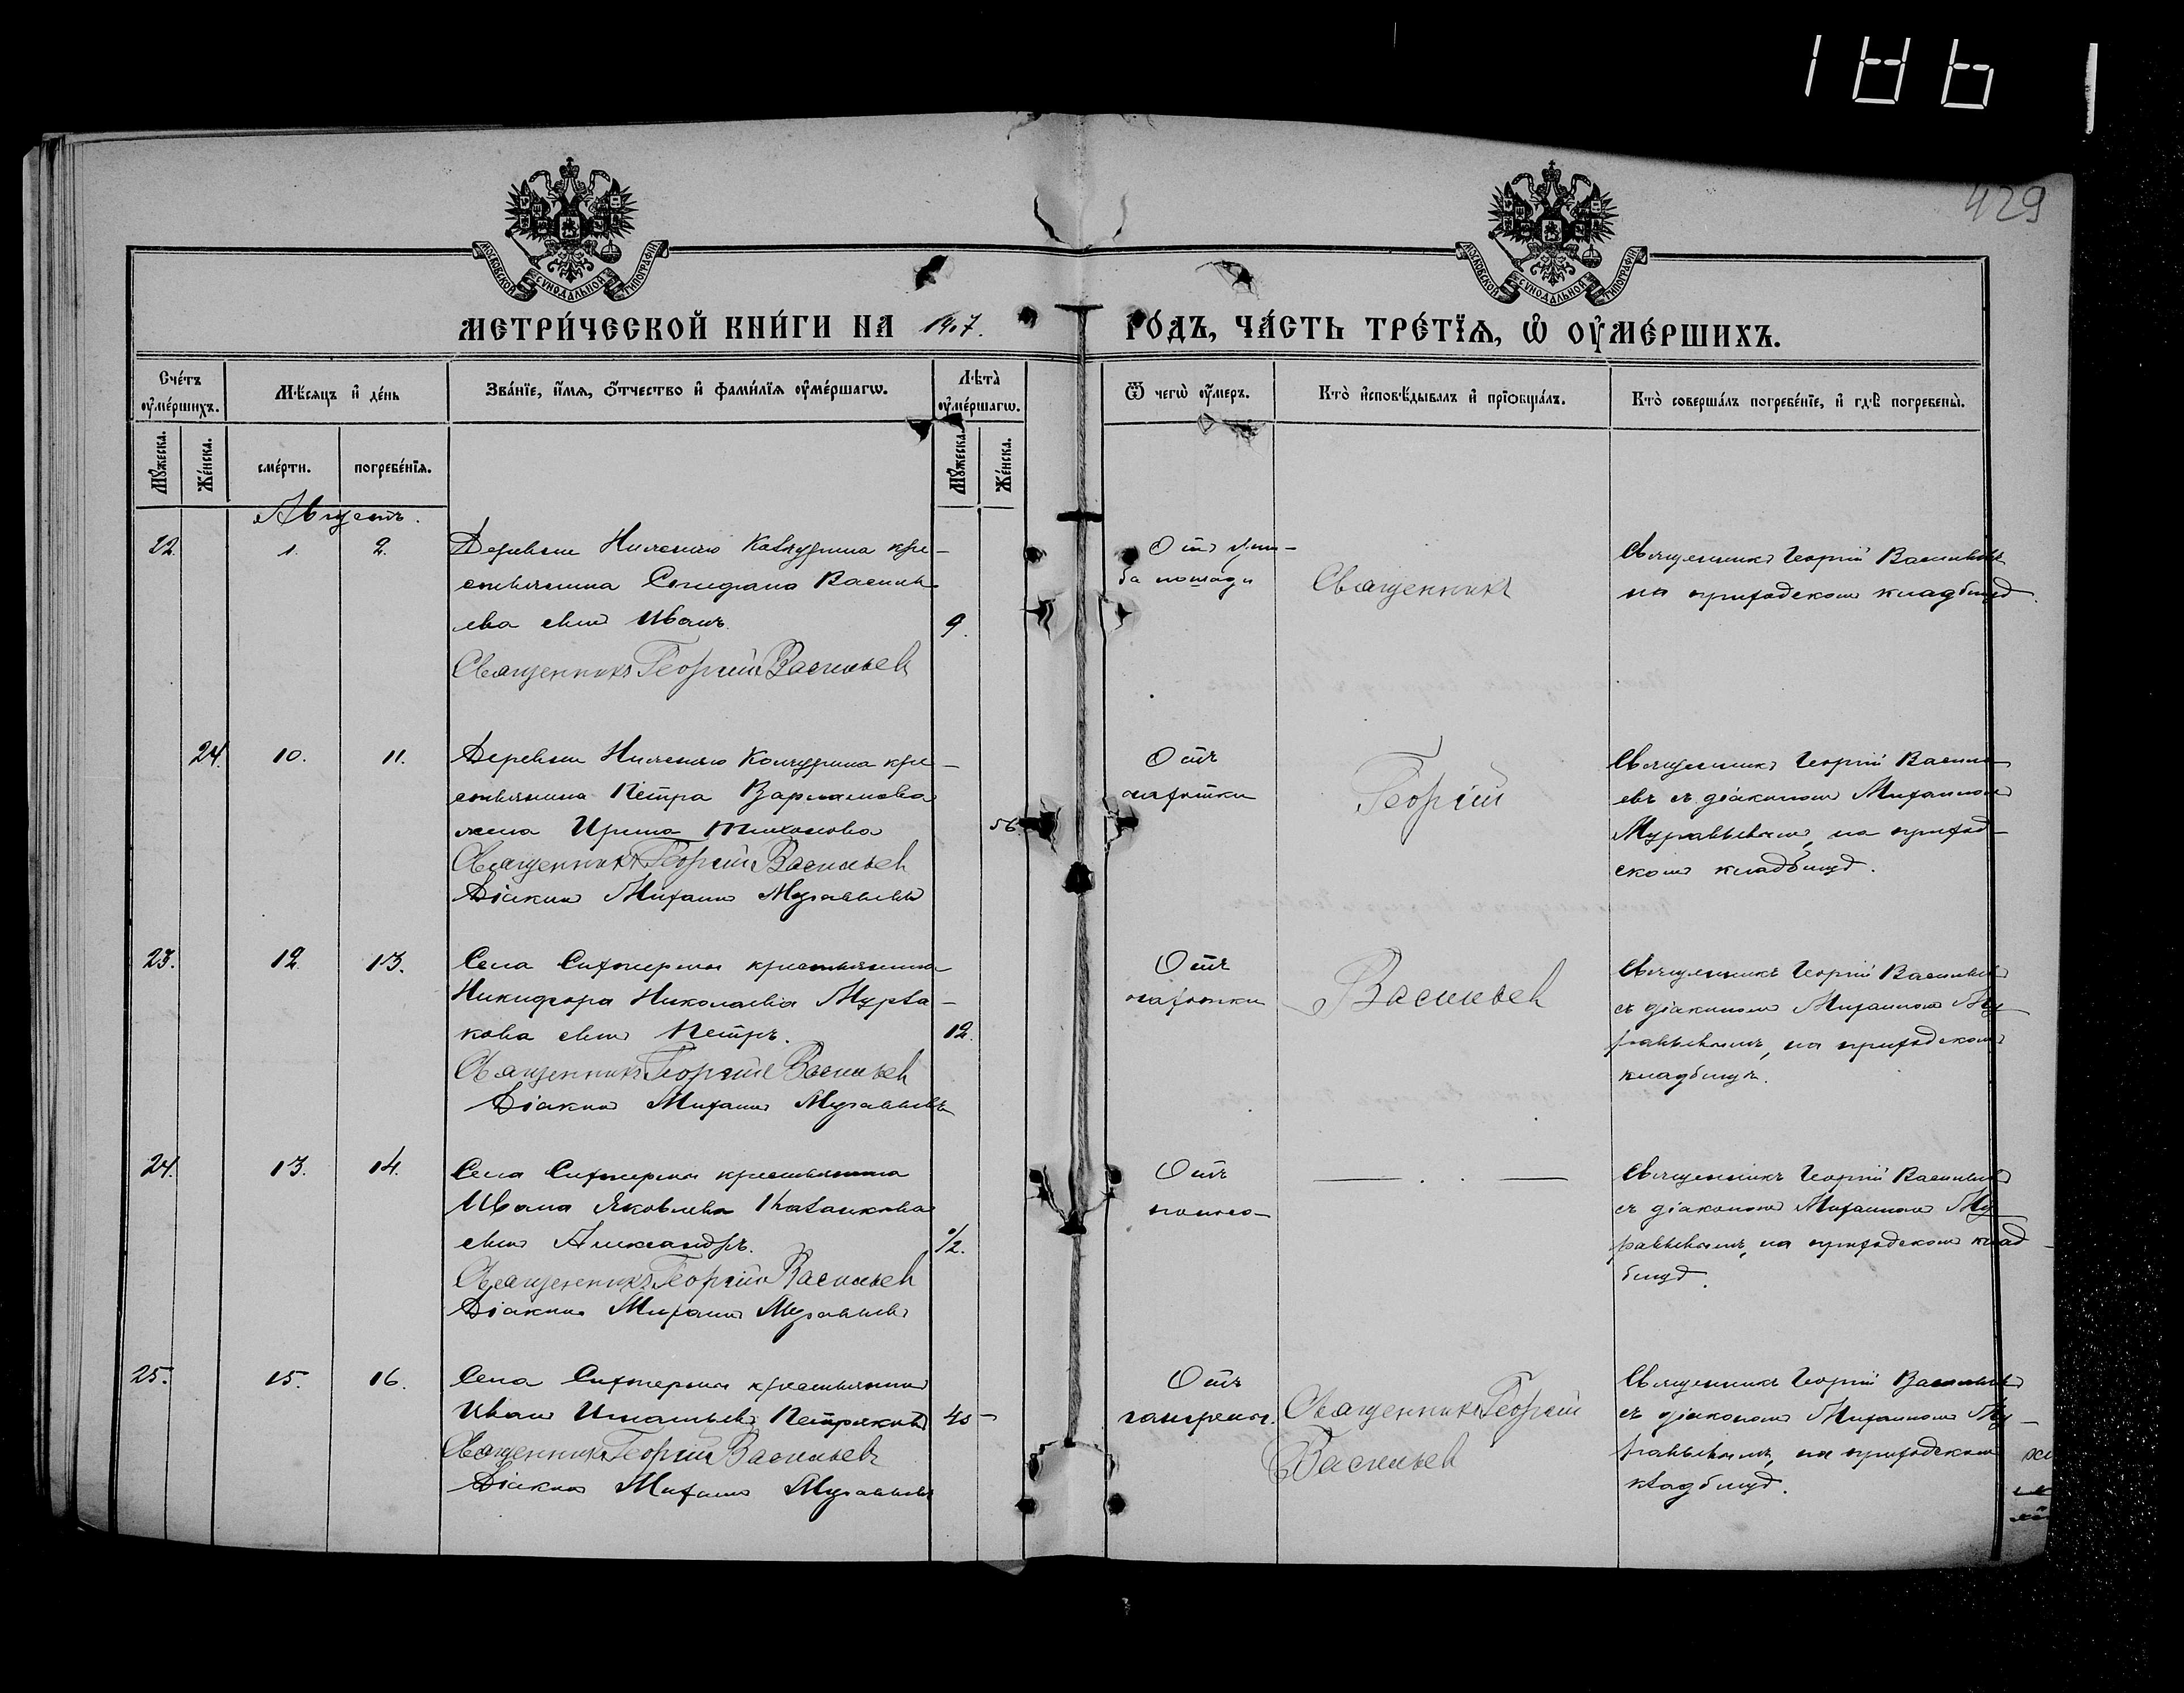 429
МОСКОВСКОЙ СѴНОДАЛЬНОЙ ТИПОГРАФІИ
МОСКОВСКОЙ СѴНОДАЛЬНОЙ ТИПОГРАФІИ
МЕТРИ́ЧЕСКОЙ КНИ́ГИ НА 1907. ГО́ДЪ, ЧА́СТЬ ТРЕ́ТЇѦ, Ѡ ОУ҆МЕ́РШИХЪ.
Сче́тъ оу҆ме́ршихъ.
Мѣ́сяцъ и҆ де́нь
Зва́нїе, и҆́мѧ, ѻ҆́тчество и҆ фами́лїѧ оу҆ме́ршагѡ.
Лѣ́та оу҆ме́ршагѡ.
Ѿ чегѡ̀ оу҆́меръ.
Кто̀ и҆сповѣ́дывалъ и҆ прїѻбща́лъ.
Кто̀ соверша́лъ погребе́нїе, и҆ гдѣ̀ погребены̀.
Мꙋ́жеска.
Же́нска.
сме́рти.
погребе́нїѧ.
Мꙋ́жеска.
Же́нска.
Августъ.
22. 1. 2. Деревни кре-
стьянина Василь-
ева сынъ Иванъ. 9.
Священникъ Георгій Васильевъ
Отъ
лошади
Священникъ
Священникъ Георгій Васильевъ
на приходскомъ кладбищѣ.
24. 10. 11. Деревни кре-
стьянина Петра Варламова
жена Ирина Тихонова 56.
Священникъ Георгій Васильевъ
Діаконъ Михаилъ Муравьевъ
Отъ
чахотки
Георгій
Священникъ Георгій Василь-
евъ съ діакономъ Михаиломъ
Муравьевымъ, на приход-
скомъ кладбищѣ.
23. 12. 13. Села крестьянина
Никифора Николаева Мурза-
кова сынъ Петръ. 12.
Священникъ Георгій Васильевъ
Діаконъ Михаилъ Муравьевъ
Отъ
чахотки
Васильевъ
Священникъ Георгій Васильевъ
съ діакономъ Михаиломъ Му-
равьевымъ, на приходскомъ
кладбищѣ.
24. 13. 14. Села крестьянина
Ивана Яковлева
сынъ Александръ. 1/2.
Священникъ Георгій Васильевъ
Діаконъ Михаилъ Муравьевъ
Отъ
поноса
— . . —
Священникъ Георгій Васильевъ
съ діакономъ Михаиломъ Му-
равьевымъ, на приходскомъ клад-
бищѣ.
25. 15. 16. Села крестьянинъ
Иванъ Игнатьевъ Петряковъ 45
Священникъ Георгій Васильевъ
Діаконъ Михаилъ Муравьевъ
Отъ
гангрены.
Священникъ Георгій
Васильевъ
Священникъ Георгій Васильевъ
съ діакономъ Михаиломъ Му-
равьевымъ, на приходскомъ
кладбищѣ.